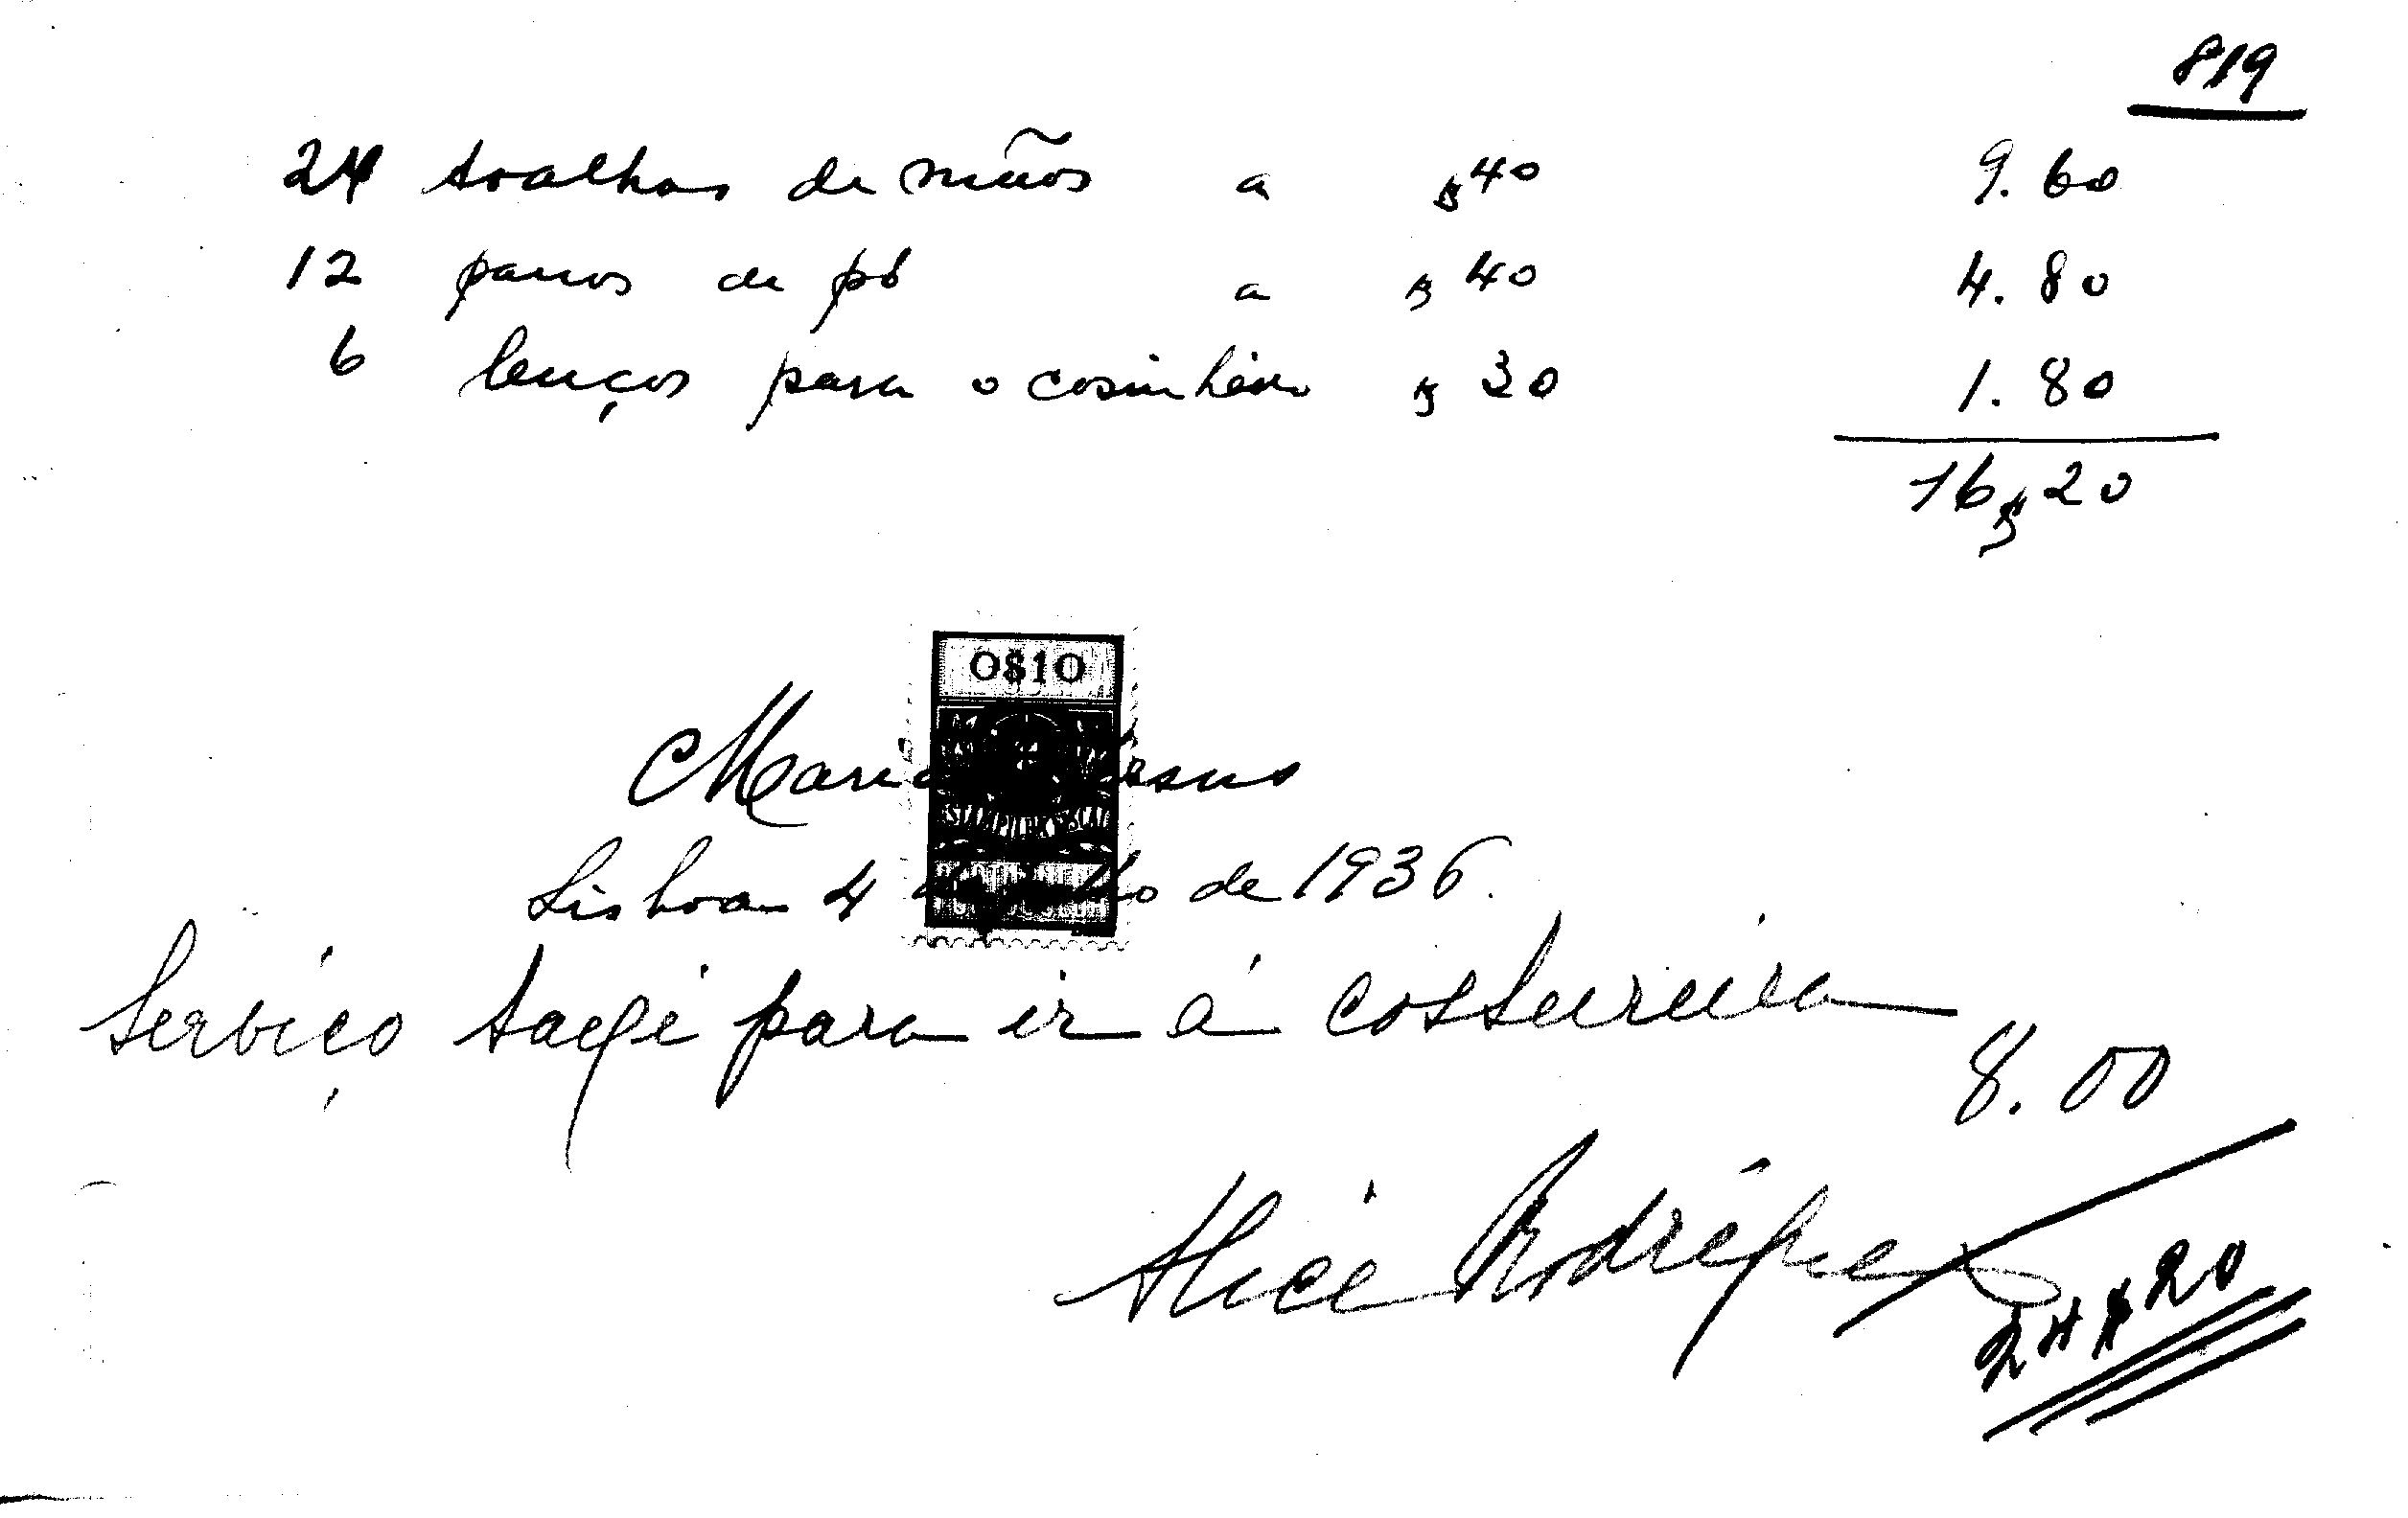 819
24 toalhas de mãos a $40 9.60
12 panos de pó a $40 4.80
6 lenços para o cosinheiro $30 1.80
16$20
0$10
Maria Jesus
ESTAMPILHA FISCAL
Lisboa 4 de 1936.
Serviço taxi para ir á costureira
8.00
Alice Rodrigues
24$20